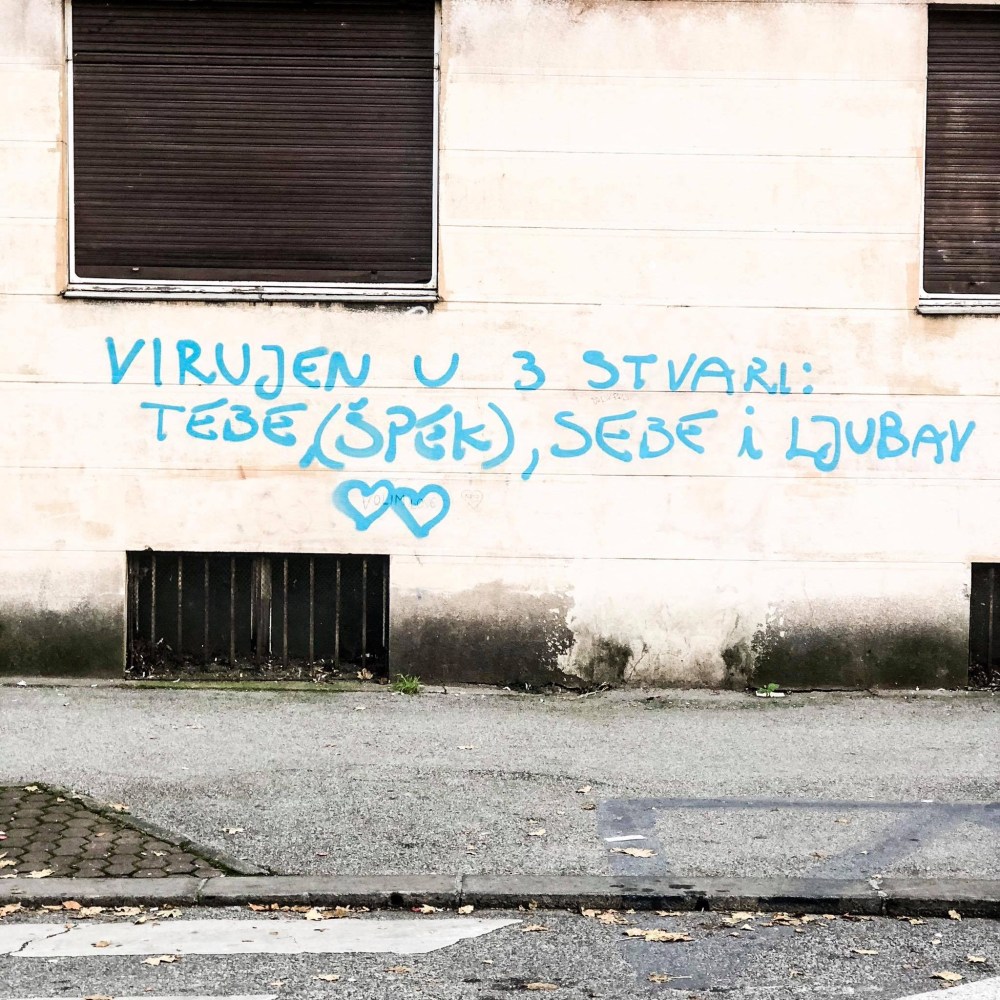 VIRUJEN U 3 STVARI:
TEBE, (ŠPEK), SEBE i LJUBAV